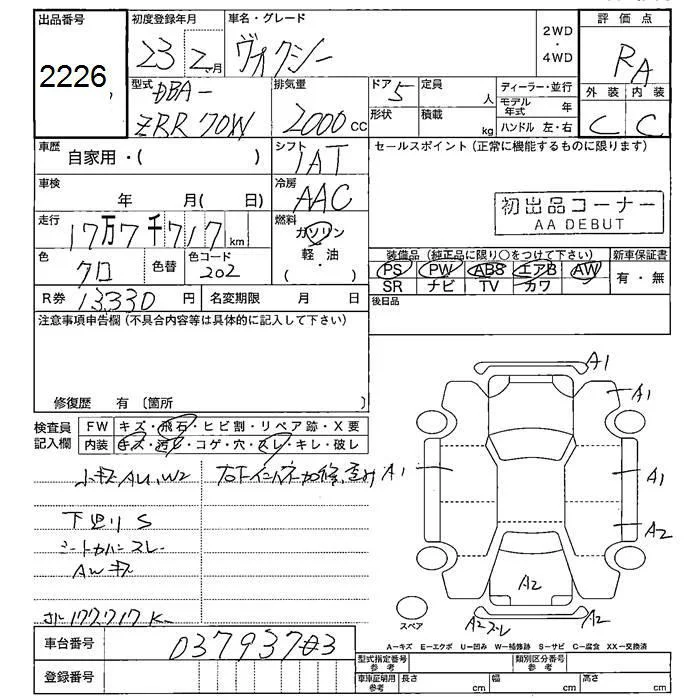 出品番号 初度登録年月 車名・グレード 2WD・4WD 評価点
2226 23 2ヶ月 ヴォクシー RA
型式 DBA- 排気量 ドア 5 定員 人 ディーラー・並行 外装 内装
ZRR70W 2000cc 形状 積載 kg モデル年式 年 C C
ハンドル 左・右
車歴 自家用・( ) シフト IAT セールスポイント(正常に機能するものに限ります)
車検 年 月( 日) 冷房 AAC
初出品コーナー
AA DEBUT
走行 17万7千717km 燃料 ガソリン・軽・油( )
色 クロ 色替 色コード 202
装備品(純正品に限り○をつけて下さい) 新車保証書
PS PW ABS エアB AW 有・無
SR ナビ TV カワ
R券 13330円 名変期限 月 日 後日品
注意事項申告欄(不具合内容等は具体的に記入して下さい)
修復歴 有 〔箇所 〕
検査員記入欄 FW キズ・飛石・ヒビ割・リペア跡・X要
内装 キズ・汚レ・コゲ・穴・スレ・キレ・破レ
小キズ AU、W2
下廻り S
シートカバースレ
AWキズ
メーター 177717K
A1
A1
A1 A1
A2
A2
スペア A2スレ A2
A-キズ E-エクボ U-凹み W-補修跡 S-サビ C-腐食 XX-交換済
車台番号 03793703
型式指定番号 参考 類別区分番号 参考
登録番号 車庫証明用 参考 長さ cm 幅 cm 高さ cm